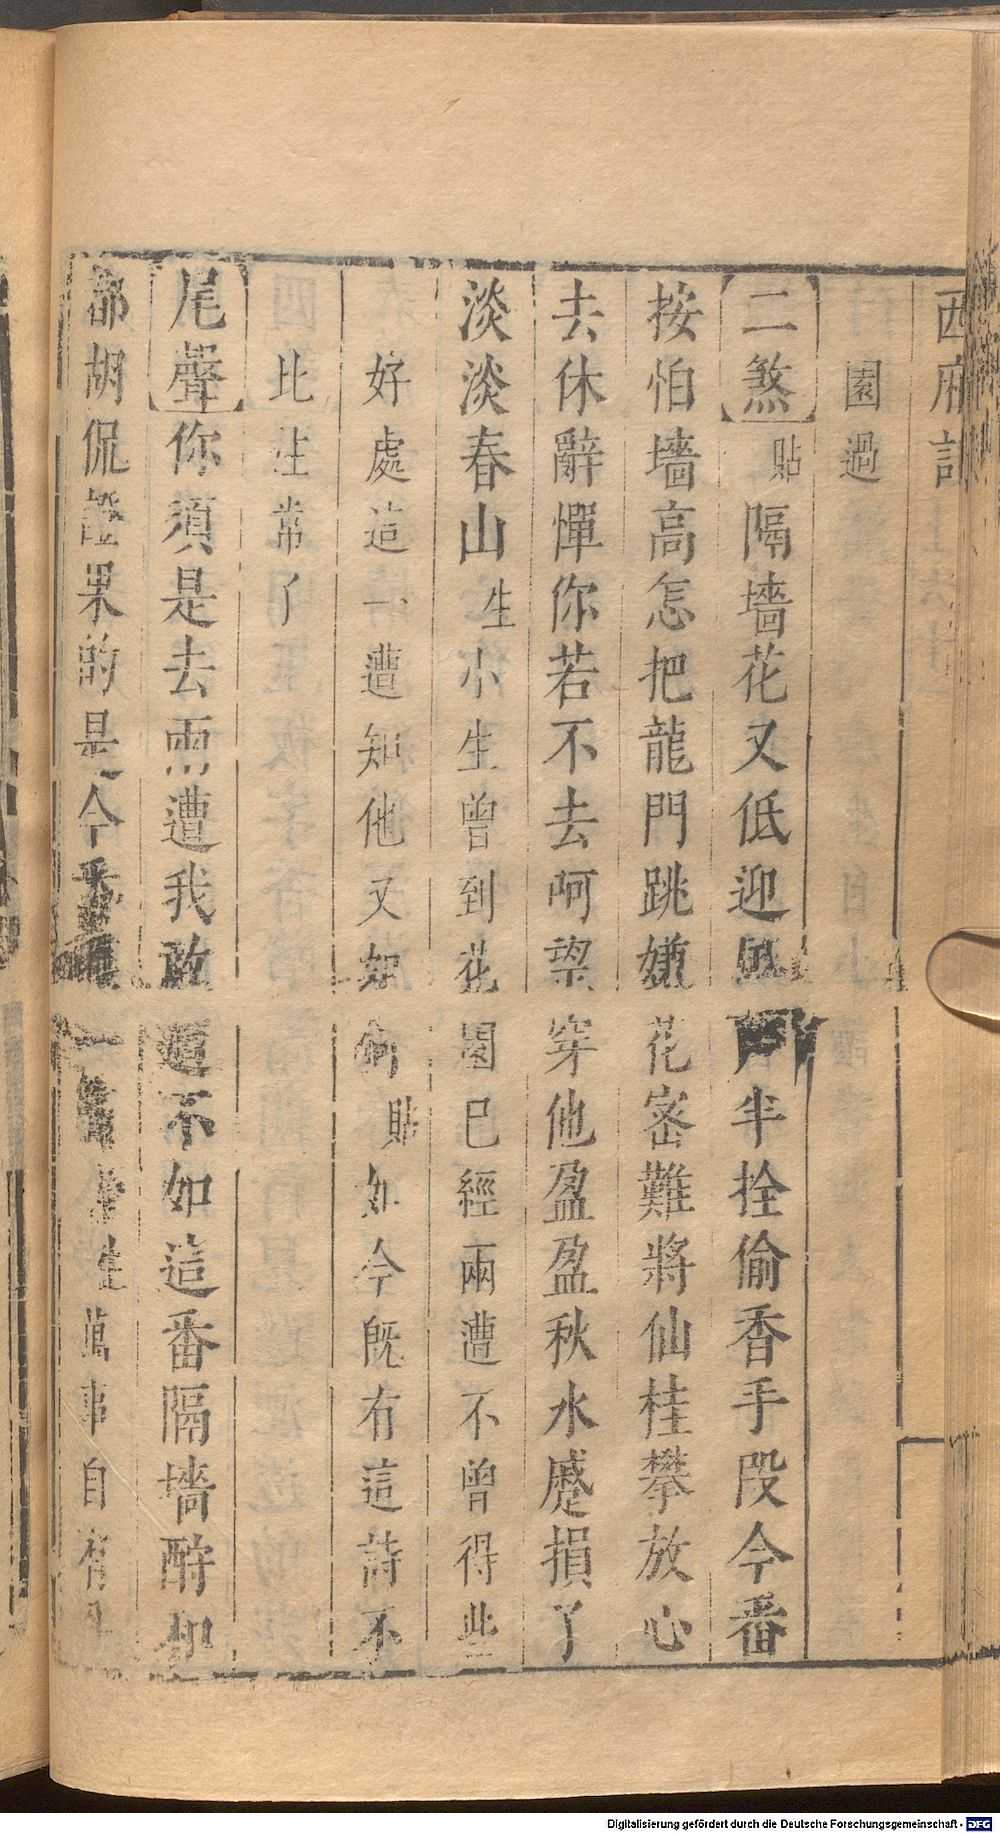 西廂記
園過
二煞貼隔墻花又低迎風戶半拴偷香手段今番
按怕墻高怎把龍門跳嫌花密難將仙桂攀放心
去休辭憚你若不去呵望穿他盈盈秋水蹙損了
淡淡春山生小生曾到花園已經兩遭不曾得些
好處這一遭知他又如何貼如今既有這詩不
比徃常了
尾聲你須是去兩遭我敢道不如這番隔墻酧和
都胡侃證果的是今番一生萬事自有
Digitalisierung gefördert durch die Deutsche Forschungsgemeinschaft - DFG